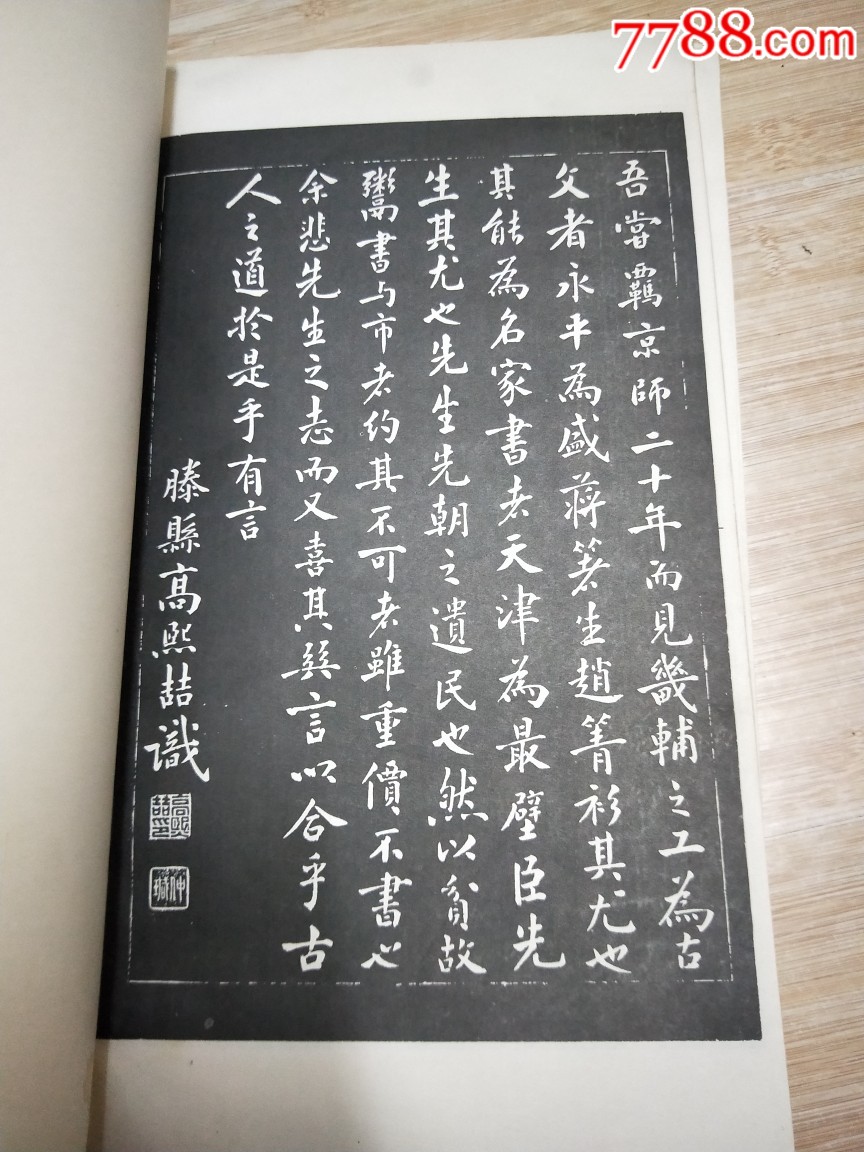 7788.com
吾嘗羈京師二十年而見畿輔之工為古
文者永平為盛蔣箸生趙菁衫其尤也
其能為名家書者天津為最壁臣先
生其尤也先生先朝之遺民也然以貧故
鬻書与市者約其不可者雖重價不書也
余悲先生之志而又喜其言以合乎古
人之道於是乎有言
滕縣高熙喆識
高熙喆印
仲